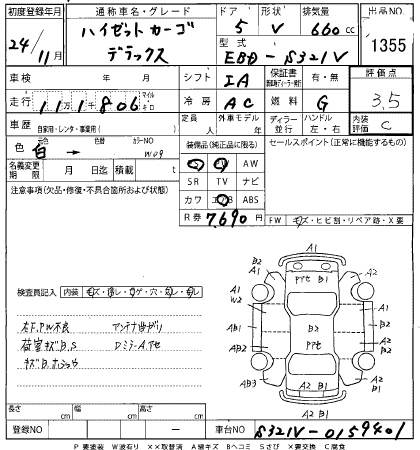 初度登録年月 通称車名・グレード ドア 形状 排気量 出品NO
24/11月 ハイゼットカーゴ デラックス 5 V 660cc 1355
型式 EBD-S321V
車検 年 月 シフト IA 保証書 有・無 評価点
走行 111806 マイル キロ 冷房 AC 燃料 G 3.5
車歴 自家用・レンタ・事業用( ) 定員 人 外車モデル 年 ディーラー 並行 ハンドル 左・右 内装評価 C
色 白→ 元色 色替 カラーNO W09
装備品(純正品に限る) セールスポイント(正常に機能するもの)
名義変更期限 月 日迄 積載 t
PS PW AW
SR TV ナビ
カワ エアB ABS
注意事項(欠品・修復・不具合箇所および状態)
R券 7,690 円
FW キズ・ヒビ割・リペア跡・X要
検査員記入 内装 キズ・ヨゴレ・コゲ・穴・
P/W不良 アンテナ曲がり
荷室キズB.S DミラーA.アセ
A1
B2 A1 Pアセ B1 A2
A1 W2 A2
AB1 B2 A1
AB2 Pアセ B1 B2
A2 B1 A2
A2 B1
長さ cm 幅 cm 高さ cm
登録NO - 車台NO S321V-0159401
P要塗装 W波有り XX取替済 A線キズ Bヘコミ Sさび X要交換 C腐食